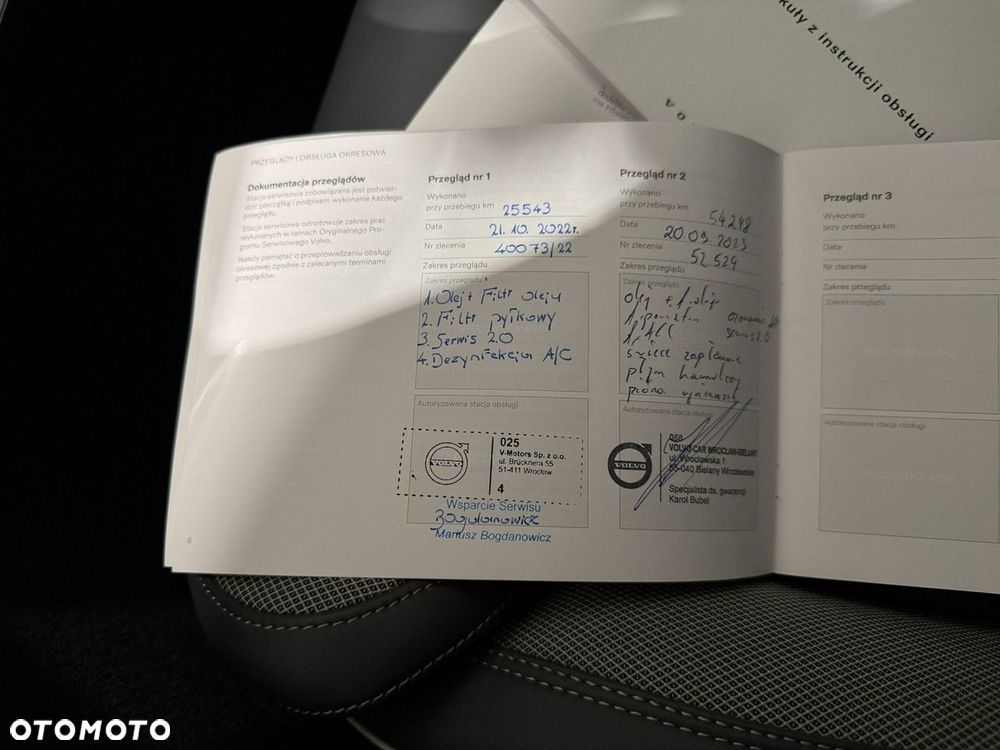 kuły z instrukcji obsługi
PRZEGLĄDY I OBSŁUGA OKRESOWA
Dokumentacja przeglądów
Stacja serwisowa zobowiązana jest potwier-
dzić pieczątką i podpisem wykonanie każdego
przeglądu.
Stacja serwisowa odnotowuje zakres prac
wykonanych w ramach Oryginalnego Pro-
gramu Serwisowego Volvo.
Należy pamiętać o przeprowadzaniu obsługi
okresowej zgodnie z zalecanymi terminami
przeglądów.
6
Przegląd nr 1
Wykonano
przy przebiegu km 25543
Data 21.10.2022r.
Nr zlecenia 40073/22
Zakres przeglądu
Zakres przeglądu
1. Olej + Filtr oleju
2. Filtr pyłkowy
3. Serwis 2.0
4. Dezynfekcja A/C
Autoryzowana stacja obsługi
VOLVO
025
V-Motors Sp. z o.o.
ul. Brücknera 55
51-411 Wrocław
4
Wsparcie Serwisu
Bogdanowicz
Mariusz Bogdanowicz
Przegląd nr 2
Wykonano
przy przebiegu km 54248
Data 20.09.2023
Nr zlecenia 52524
Zakres przeglądu
Zakres przeglądu
olej + f. oleju
serwis 2.0
świece zapłonowe
płyn hamulcowy
Autoryzowana stacja obsługi
VOLVO
058
VOLVO CAR WROCŁAW-BIELANY
ul. Wrocławska 1
55-040 Bielany Wrocławskie
Specjalista ds. gwarancji
Karol Bubel
Przegląd nr 3
Wykonano
przy przebiegu km
Data
Nr zlecenia
Zakres przeglądu
Zakres przeglądu
Autoryzowana stacja obsługi
OTOMOTO